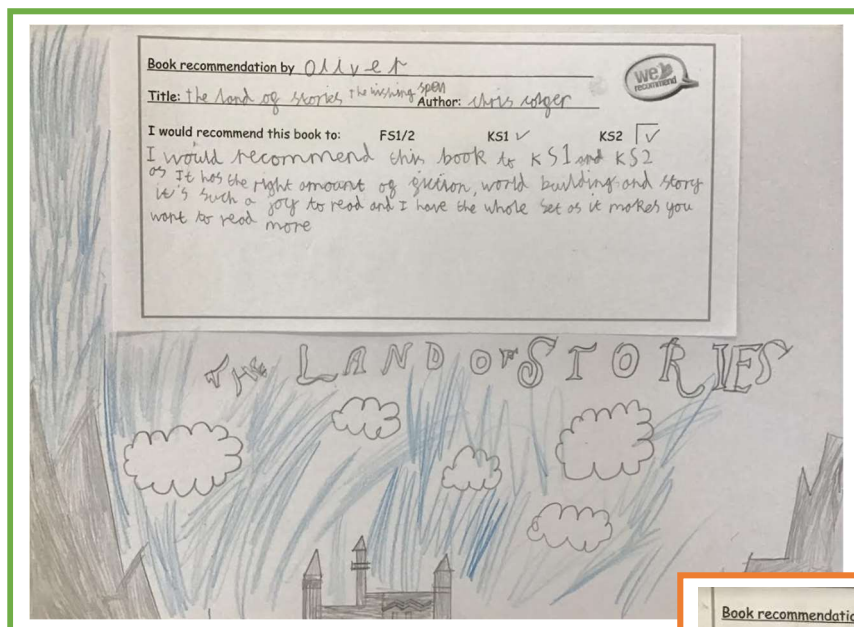 Book recommendation by Oliver
we recommend
Title: the land of stories the wishing spell Author: chris colger
I would recommend this book to: FS1/2 KS1 ✓ KS2 ✓
I would recommend this book to KS1 and KS2
as It has the right amount of fiction, world buildings and story
it's such a joy to read and I have the whole set as it makes you
want to read more
THE LAND OF STORIES
Book recommendatio